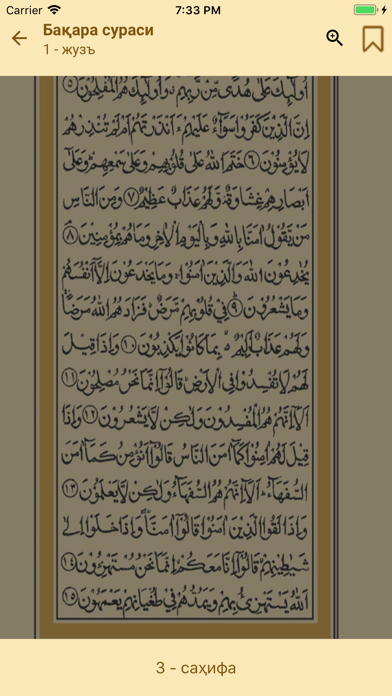 Carrier 7:33 PM
Бақара сураси
1 - жузъ
اُولٰٓئِكَ عَلٰى هُدًى مِّنْ رَّبِّهِمْ وَاُولٰٓئِكَ هُمُ الْمُفْلِحُوْنَ ۝٥
اِنَّ الَّذِيْنَ كَفَرُوْا سَوَآءٌ عَلَيْهِمْ ءَاَنْذَرْتَهُمْ اَمْ لَمْ تُنْذِرْهُمْ
لَا يُؤْمِنُوْنَ ۝٦ خَتَمَ اللّٰهُ عَلٰى قُلُوْبِهِمْ وَعَلٰى سَمْعِهِمْ وَعَلٰٓى
اَبْصَارِهِمْ غِشَاوَةٌ وَّلَهُمْ عَذَابٌ عَظِيْمٌ ۝٧ وَمِنَ النَّاسِ
مَنْ يَّقُوْلُ اٰمَنَّا بِاللّٰهِ وَبِالْيَوْمِ الْاٰخِرِ وَمَا هُمْ بِمُؤْمِنِيْنَ ۝٨
يُخٰدِعُوْنَ اللّٰهَ وَالَّذِيْنَ اٰمَنُوْا وَمَا يَخْدَعُوْنَ اِلَّآ اَنْفُسَهُمْ
وَمَا يَشْعُرُوْنَ ۝٩ فِيْ قُلُوْبِهِمْ مَّرَضٌ فَزَادَهُمُ اللّٰهُ مَرَضًا
وَلَهُمْ عَذَابٌ اَلِيْمٌ بِمَا كَانُوْا يَكْذِبُوْنَ ۝١٠ وَاِذَا قِيْلَ
لَهُمْ لَا تُفْسِدُوْا فِى الْاَرْضِ قَالُوْٓا اِنَّمَا نَحْنُ مُصْلِحُوْنَ ۝١١
اَلَآ اِنَّهُمْ هُمُ الْمُفْسِدُوْنَ وَلٰكِنْ لَّا يَشْعُرُوْنَ ۝١٢ وَاِذَا
قِيْلَ لَهُمْ اٰمِنُوْا كَمَآ اٰمَنَ النَّاسُ قَالُوْٓا اَنُؤْمِنُ كَمَآ اٰمَنَ
السُّفَهَآءُ اَلَآ اِنَّهُمْ هُمُ السُّفَهَآءُ وَلٰكِنْ لَّا يَعْلَمُوْنَ ۝١٣
وَاِذَا لَقُوا الَّذِيْنَ اٰمَنُوْا قَالُوْٓا اٰمَنَّا وَاِذَا خَلَوْا اِلٰى
شَيٰطِيْنِهِمْ قَالُوْٓا اِنَّا مَعَكُمْ اِنَّمَا نَحْنُ مُسْتَهْزِءُوْنَ ۝١٤
اَللّٰهُ يَسْتَهْزِئُ بِهِمْ وَيَمُدُّهُمْ فِيْ طُغْيَانِهِمْ يَعْمَهُوْنَ ۝١٥
3 - саҳифа